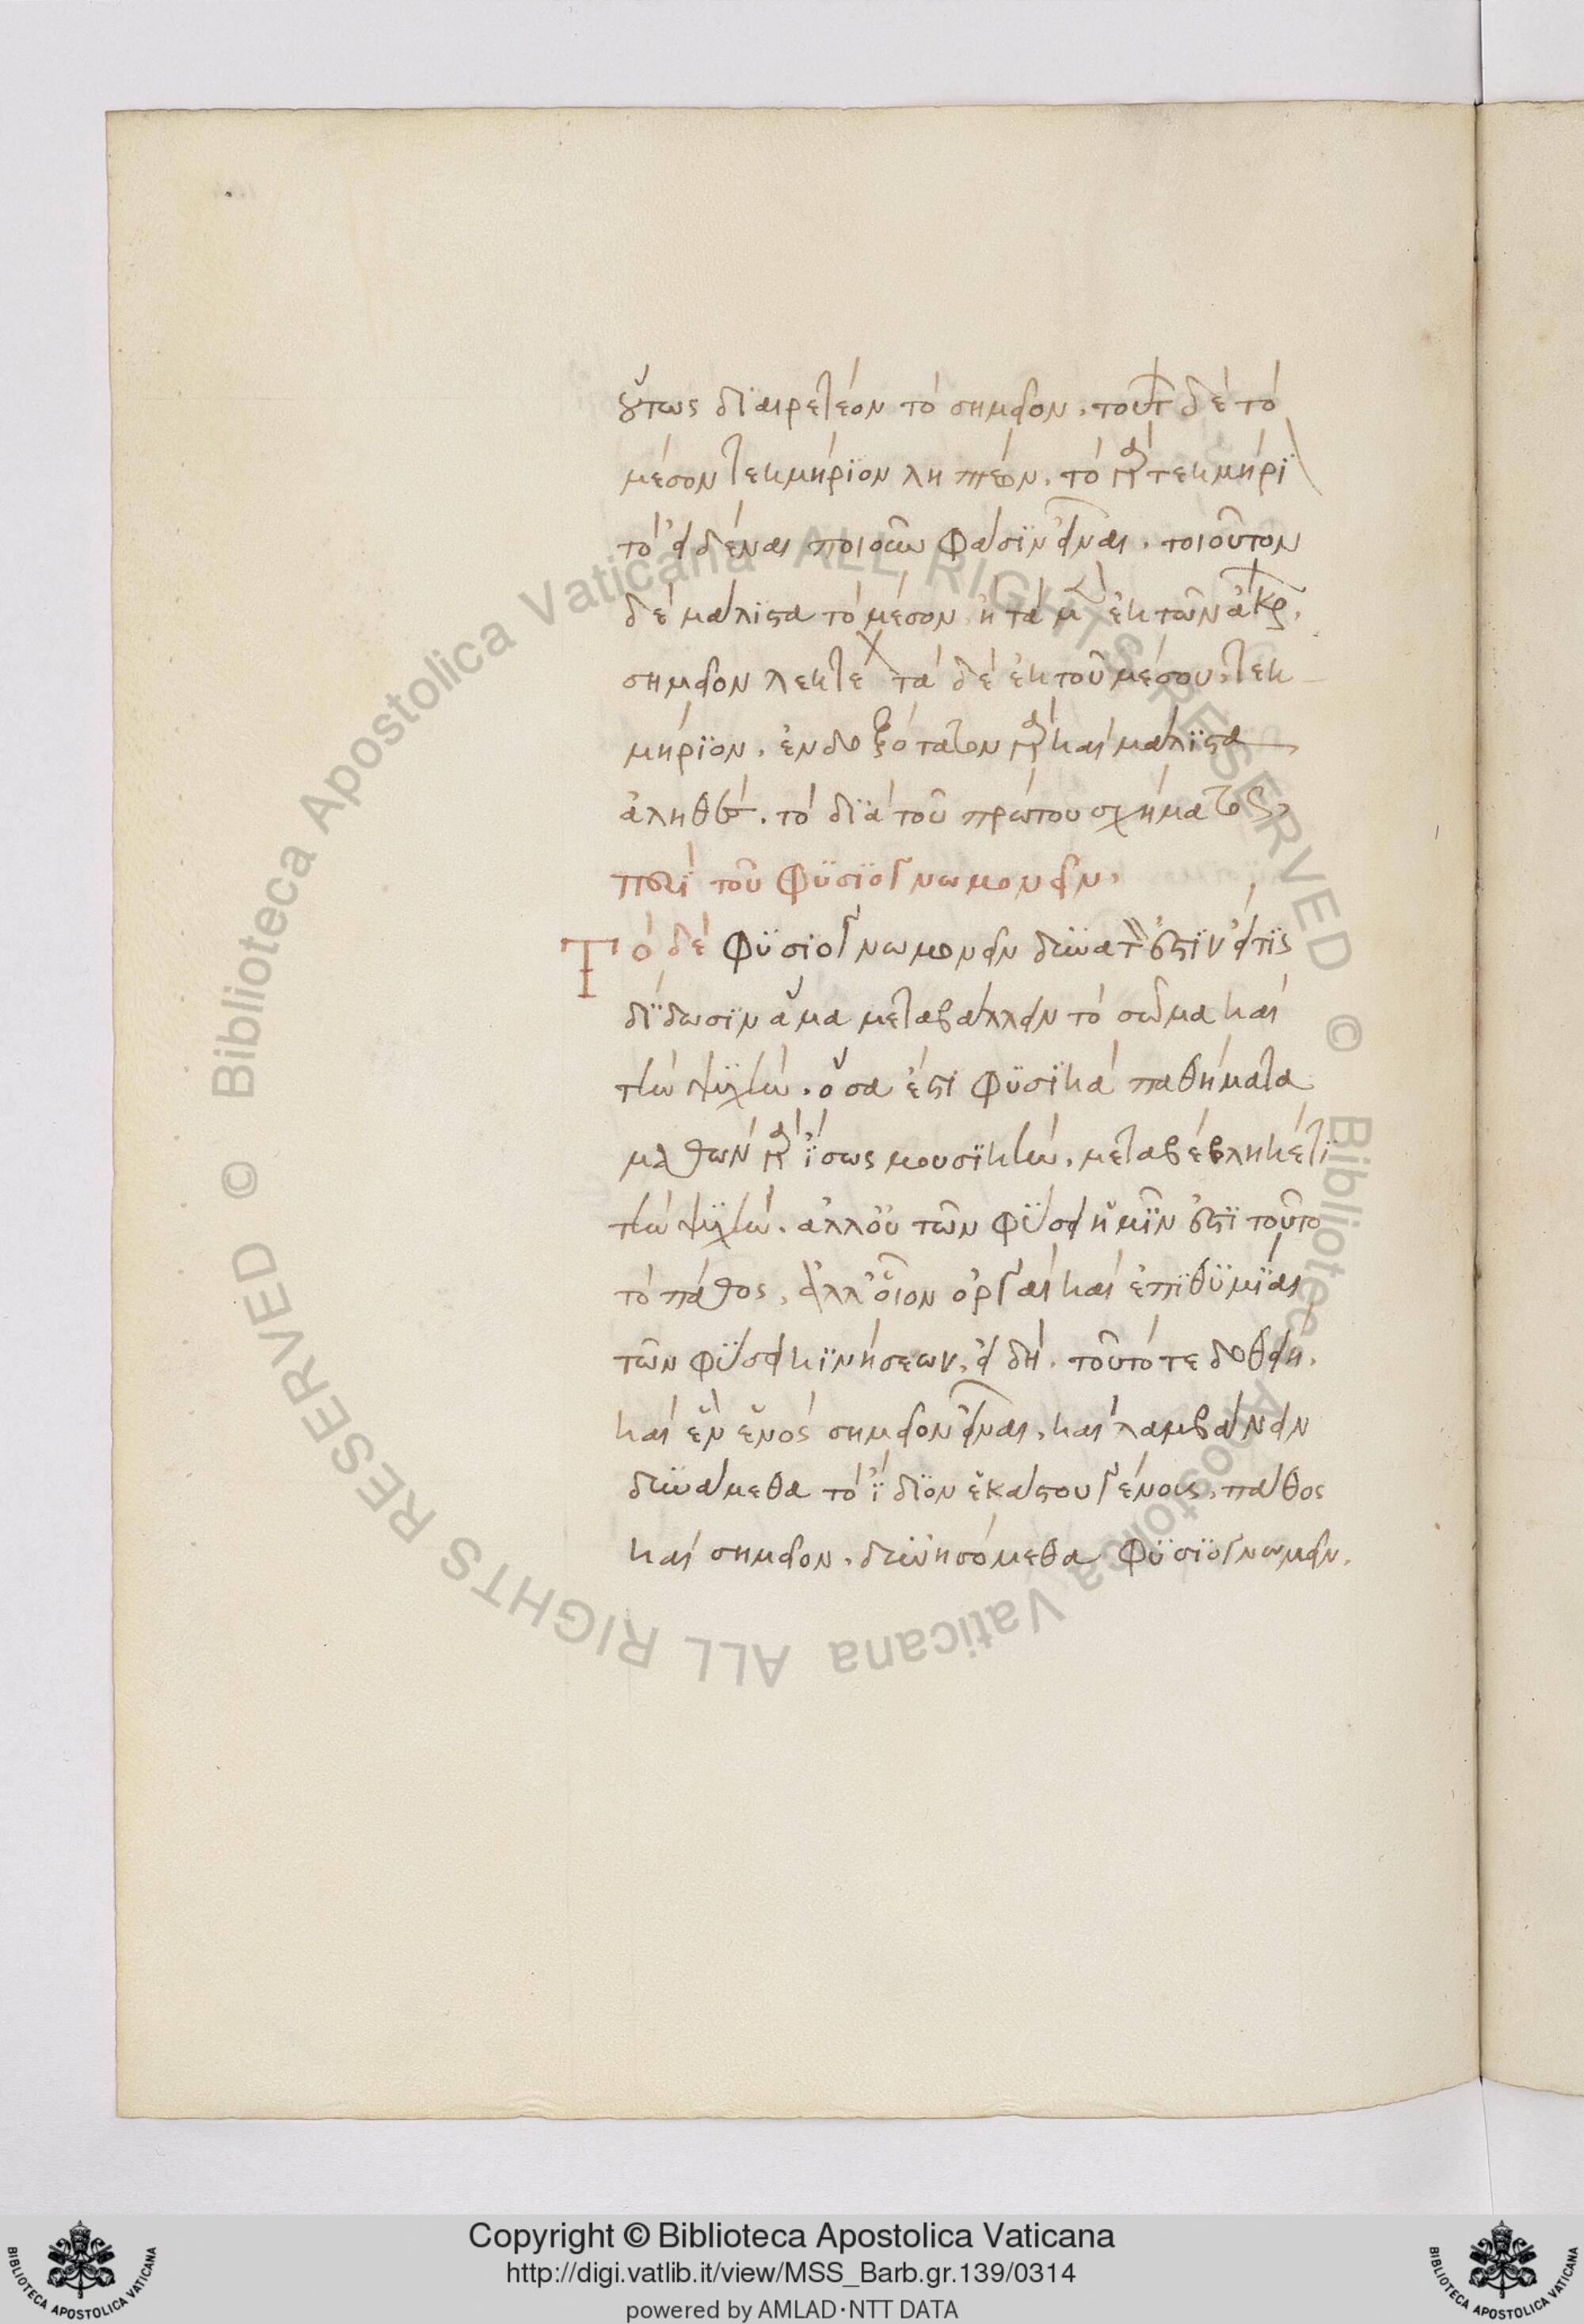 οὕτως διαιρετέον τὸ σημεῖον. τούτ δὲ τὸ
μέσον τεκμήριον ληπτέον. τὸ γὰρ τεκμήρι
τὸ εἰδέναι ποιοῦν φασὶν εἶναι. τοιοῦτον
δὲ μάλιστα τὸ μέσον ἢ τὰ μὲν ἐκ τῶν ἄκρ.
σημεῖον λεκτέ τὰ δὲ ἐκ τοῦ μέσου. τεκ
μήριον. ἐνδοξότατον γὰρ καὶ μάλιστα
ἀληθὲς. τὸ διὰ τοῦ πρώτου σχήματος,
περὶ τοῦ φυσιογνωμονεῖν.
Τὸ δὲ φυσιογνωμονεῖν δυνατόν ἐστιν εἴ τις
δίδωσιν ἅμα μεταβάλλειν τὸ σῶμα καὶ
τὴν ψυχὴν. ὅσα ἐστὶ φυσικὰ παθήματα
μαθὼν γὰρ ἴσως μουσικὴν. μεταβέβληκέ τι
τὴν ψυχὴν. ἀλλ' οὐ τῶν φύσει ἡμῖν ἐστὶ τοῦτο
τὸ πάθος. ἀλλ' οἷον ὀργαὶ καὶ ἐπιθυμίαι
τῶν φύσει κινήσεων. εἰ δὴ. τοῦτό τε δοθείη.
καὶ ἓν ἑνὸς σημεῖον εἶναι. καὶ λαμβάνειν
δυνάμεθα τὸ ἴδιον ἑκάστου γένους. πάθος
καὶ σημεῖον. δυνησόμεθα φυσιογνωμεῖν.
© Biblioteca Apostolica Vaticana ALL RIGHTS RESERVED © Biblioteca Apostolica Vaticana ALL RIGHTS RESERVED
Copyright © Biblioteca Apostolica Vaticana
http://digi.vatlib.it/view/MSS_Barb.gr.139/0314
powered by AMLAD·NTT DATA
BIBLIOTECA APOSTOLICA VATICANA
BIBLIOTECA APOSTOLICA VATICANA